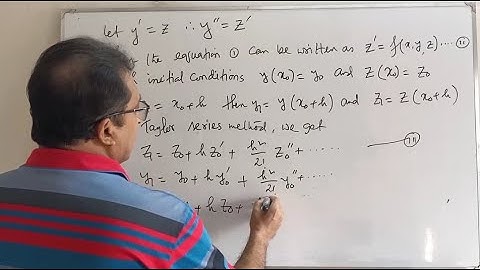 Let y' = z ∴ y'' = z'
the equation ① can be written as z' = f(x, y, z) ..... ⑪
initial conditions y(x₀) = y₀ and z(x₀) = z₀
= x₀+h then y₁ = y(x₀+h) and z₁ = z(x₀+h)
Taylor series method, we get
z₁ = z₀ + h z₀' + h²/2! z₀'' + ...... ⑪⑪
y₁ = y₀ + h y₀' + h²/2! y₀'' + ......
+ h z₀ +